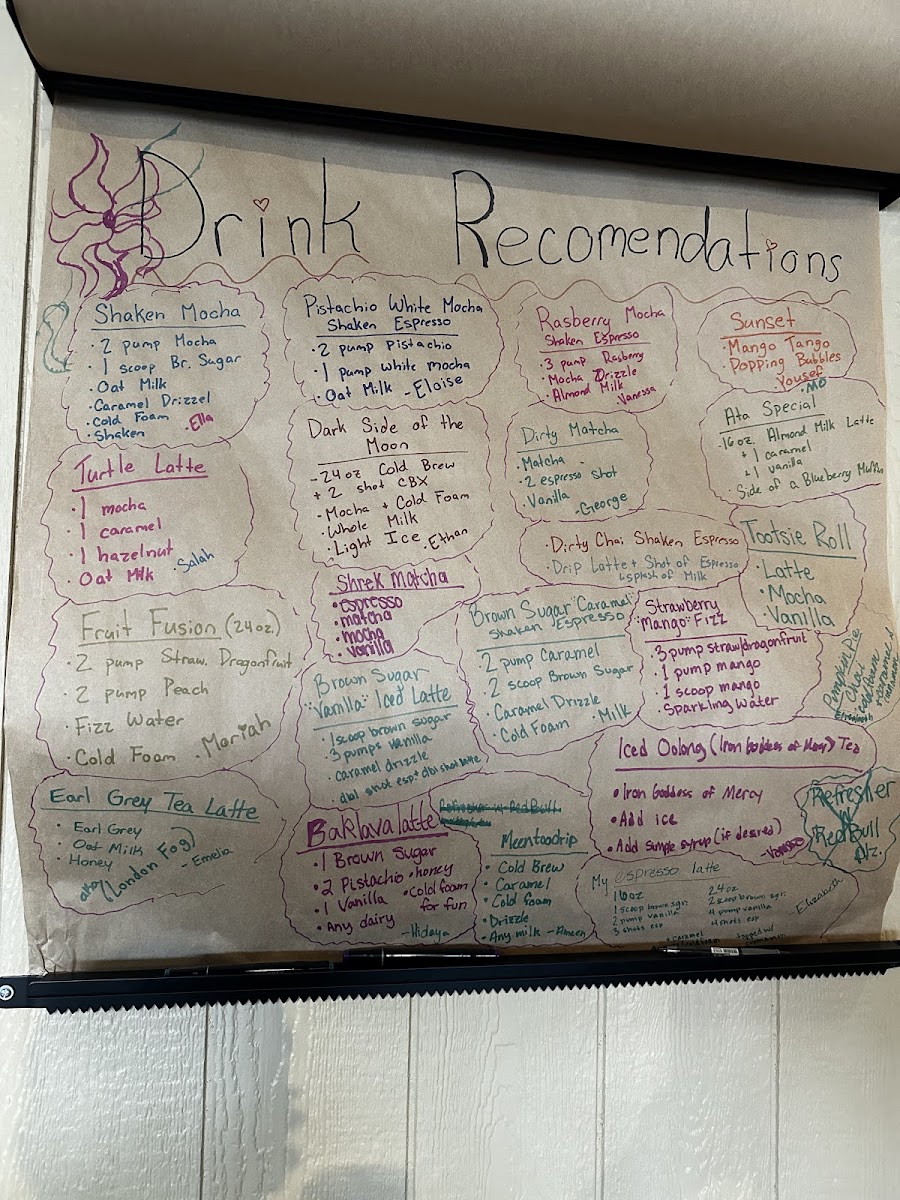 Drink Recomendations
Shaken Mocha
• 2 pump Mocha
• 1 scoop Br. Sugar
• Oat Milk
• Caramel Drizzel
• Cold Foam
• Shaken
• Ella
Pistachio White Mocha
Shaken Espresso
• 2 pump Pistachio
• 1 pump white mocha
• Oat Milk - Eloise
Rasberry Mocha
Shaken Espresso
• 3 pump Rasberry
• Mocha Drizzle
• Almond Milk
• Vanessa
Sunset
• Mango Tango
• Popping Bubbles
Yousef
• MO
Turtle Latte
• 1 mocha
• 1 caramel
• 1 hazelnut
• Oat Milk
• Salah
Dark Side of the
Moon
- 24oz Cold Brew
+ 2 shot CBX
• Mocha + Cold Foam
• Whole Milk
• Light Ice
• Ethan
Dirty Matcha
• Matcha
• 2 espresso shot
• Vanilla
- George
Ata Special
• 16oz. Almond Milk Latte
+ 1 caramel
+ 1 vanilla
• Side of a Blueberry Muffin
Fruit Fusion (24oz.)
• 2 pump Straw. Dragonfruit
• 2 pump Peach
• Fizz Water
• Cold Foam
• Mariah
Shrek Matcha
• espresso
• matcha
• mocha
• vanilla
• Dirty Chai Shaken Espresso
• Drip Latte + Shot of Espresso
+ splash of Milk
Tootsie Roll
• Latte
• Mocha
• Vanilla
Brown Sugar
"Vanilla" Iced Latte
• 1 scoop brown sugar
• 3 pumps vanilla
• caramel drizzle
• dbl shot esp + dbl shot latte
Brown Sugar "Caramel"
Shaken Espresso
• 2 pump Caramel
• 2 scoop Brown Sugar
• Caramel Drizzle
• Cold Foam
• Milk
Strawberry
"Mango" Fizz
• 3 pump straw/dragonfruit
• 1 pump mango
• 1 scoop mango
• Sparkling Water
Pumpkin Pie
Chai
Earl Grey Tea Latte
• Earl Grey
• Oat Milk
• Honey
aka
(London Fog)
- Emelia
Baklava latte
• 1 Brown Sugar
• 2 Pistachio
• 1 Vanilla
• Any dairy
• honey
• Cold foam
for fun
- Hidaya
Refresher w/ Red Bull
Meentaodrip
• Cold Brew
• Caramel
• Cold foam
• Drizzle
• Any milk
Iced Oolong (Iron Goddess of Mercy) Tea
• Iron Goddess of Mercy
• Add ice
• Add Simple syrup (if desired)
- Vanessa
Refresher
w/
Red Bull
My espresso latte
16oz
1 scoop brown sgr.
2 pump vanilla
3 shots esp
24oz
2 scoop brown sgr.
4 pump vanilla
4 shots esp
Elizabeth